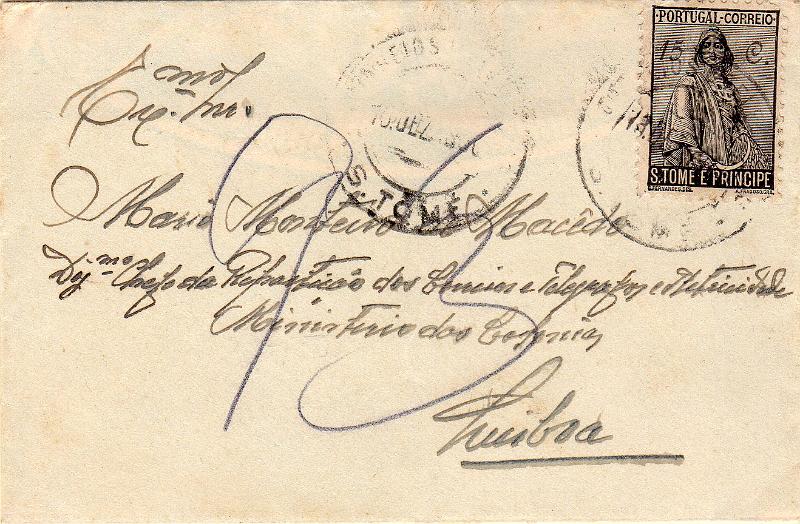 PORTUGAL-CORREIO
15 C.
S. TOMÉ E PRÍNCIPE
CORREIOS
S. TOMÉ
Ex.mo Snr.
Mario Monteiro de Macêdo
Dig.mo Chefe da Repartição dos Correios e Telegrafos e Eletricidade
Ministério dos Colonias
Lisboa